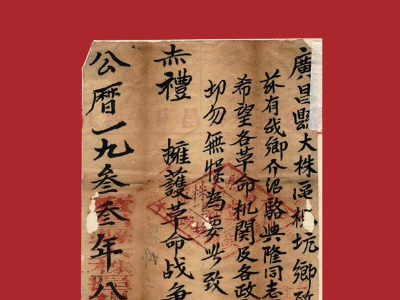 廣昌縣大株區
坑鄉致
茲有我鄉介紹駱興隆同志
希望各革命机関及各政
切勿無悮為要此致
赤禮
擁護革命战争
公曆一九叁叁年八